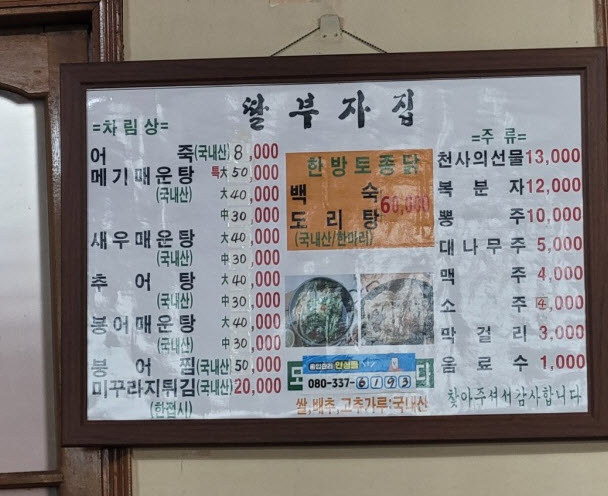 쌀부자집
=차림상=
어 죽(국내산) 8,000
메기매운탕 특大 50,000
(국내산) 大 40,000
中 30,000
새우매운탕 大 40,000
(국내산) 中 30,000
추어탕 大 40,000
(국내산) 中 30,000
붕어매운탕 大 40,000
(국내산) 中 30,000
붕어찜(국내산) 50,000
미꾸라지튀김(국내산) 20,000
(한접시)
한방토종닭
백 숙
도리탕 60,000
(국내산/한마리)
안심콜
080-337-6193
쌀,배추,고추가루:국내산
=주 류=
천사의선물 13,000
복분자 12,000
뽕 주 10,000
대나무주 5,000
맥 주 4,000
소 주 4,000
막걸리 3,000
음료수 1,000
찾아주셔서감사합니다